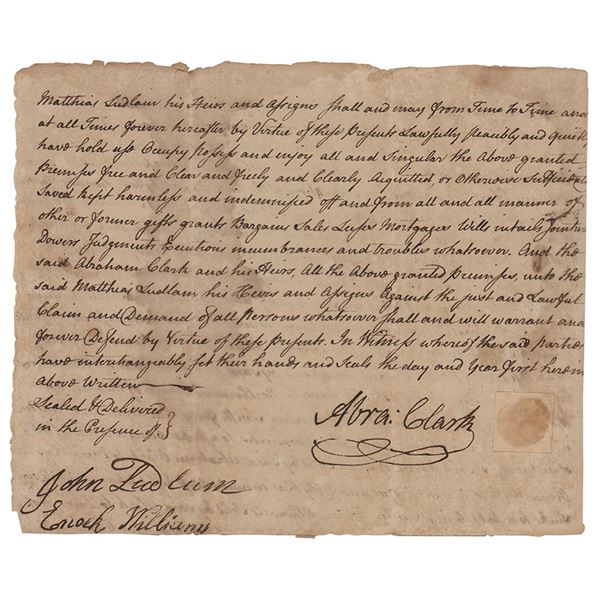 Matthias Ludlam his Heirs and Assigns shall and may from Time to Time and
at all Times forever hereafter by Virtue of these Presents Lawfully Peacibly and Quietly
have hold use Occupy Possess and enjoy all and Singular the Above granted
Premises free and Clear and freely and Clearly Acquitted or Otherwise Sufficiently
Saved kept harmless and indemnified off and from all and all manner of
other or former gifts grants Bargains Sales Leases Mortgages Wills intails Jointures
Dowers Judgments Executions incumbrances and troubles whatsoever. And the
said Abraham Clark and his Heirs, All the Above granted Premises, unto the
said Matthias Ludlam his Heirs and Assigns Against the just and Lawful
Claim and Demand of all Persons whatsoever shall and will warrant and
forever Defend by Virtue of these Presents. In Witness whereof the said parties
have interchangeably set their hands and Seals the day and Year first herein
above Written
Sealed & Delivered
in the Presence of
Abra: Clark
John Ludlum
Enoch Williams